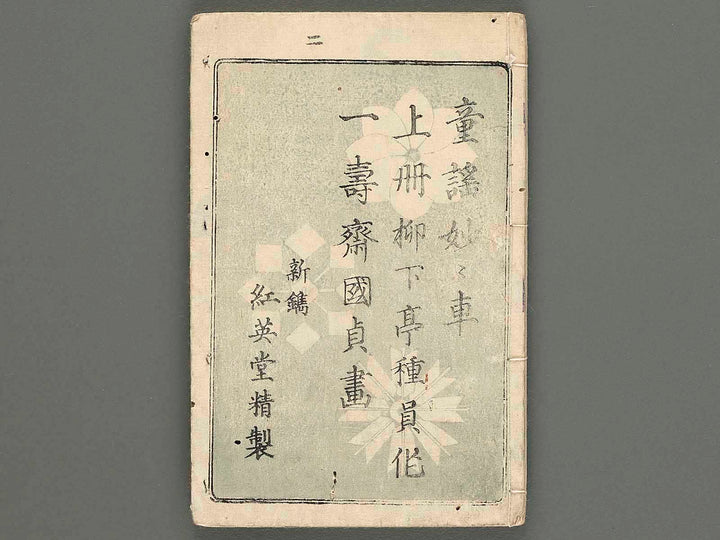 二
童謠妙〻車
上冊柳下亭種員作
一壽齋國貞畫
新鐫
紅英堂精製